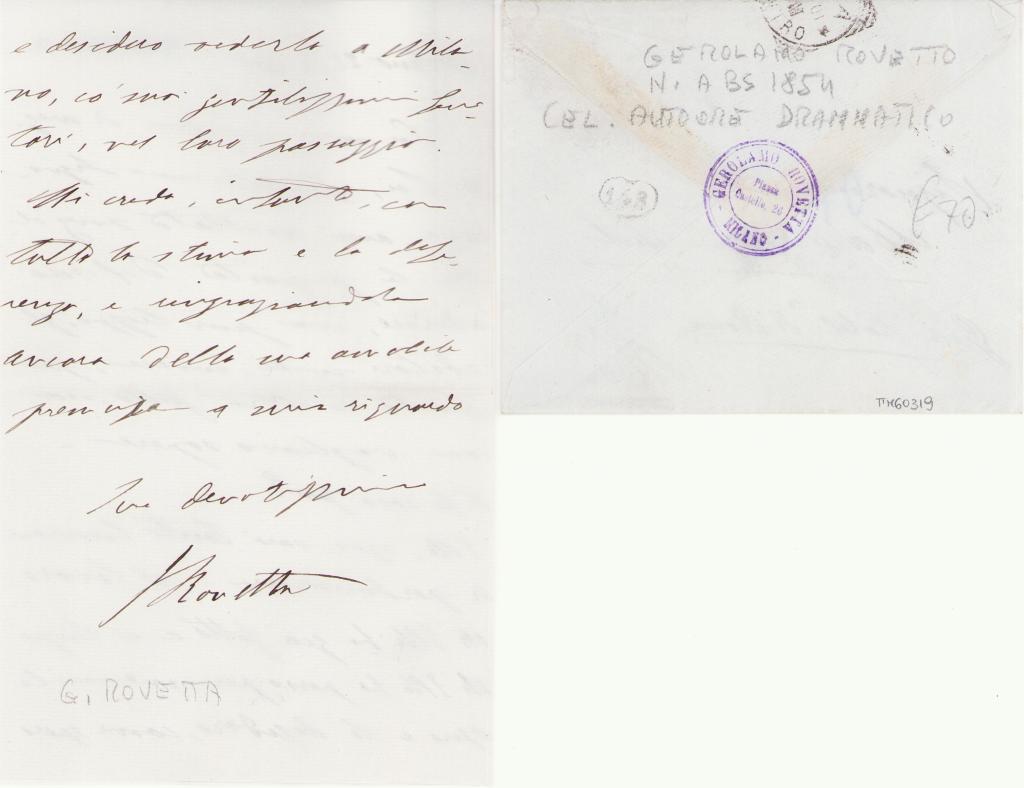 e desidero vederla a Mila-
no, co' suoi gentilissimi Geni-
tori, nel loro passaggio.
Mi creda, intanto, con
tutta la stima e la defe-
renza, e ringraziandola
ancora della sua amabile
premura a mio riguardo
Suo devotissimo
GRovetta
G. ROVETTA
GEROLAMO ROVETTO
N. A BS 1854
CEL. AUTOORE DRAMMATICO
GEROLAMO ROVETTA - MILANO -
Piazza
Castello, 26
163
€ 70
TM60319